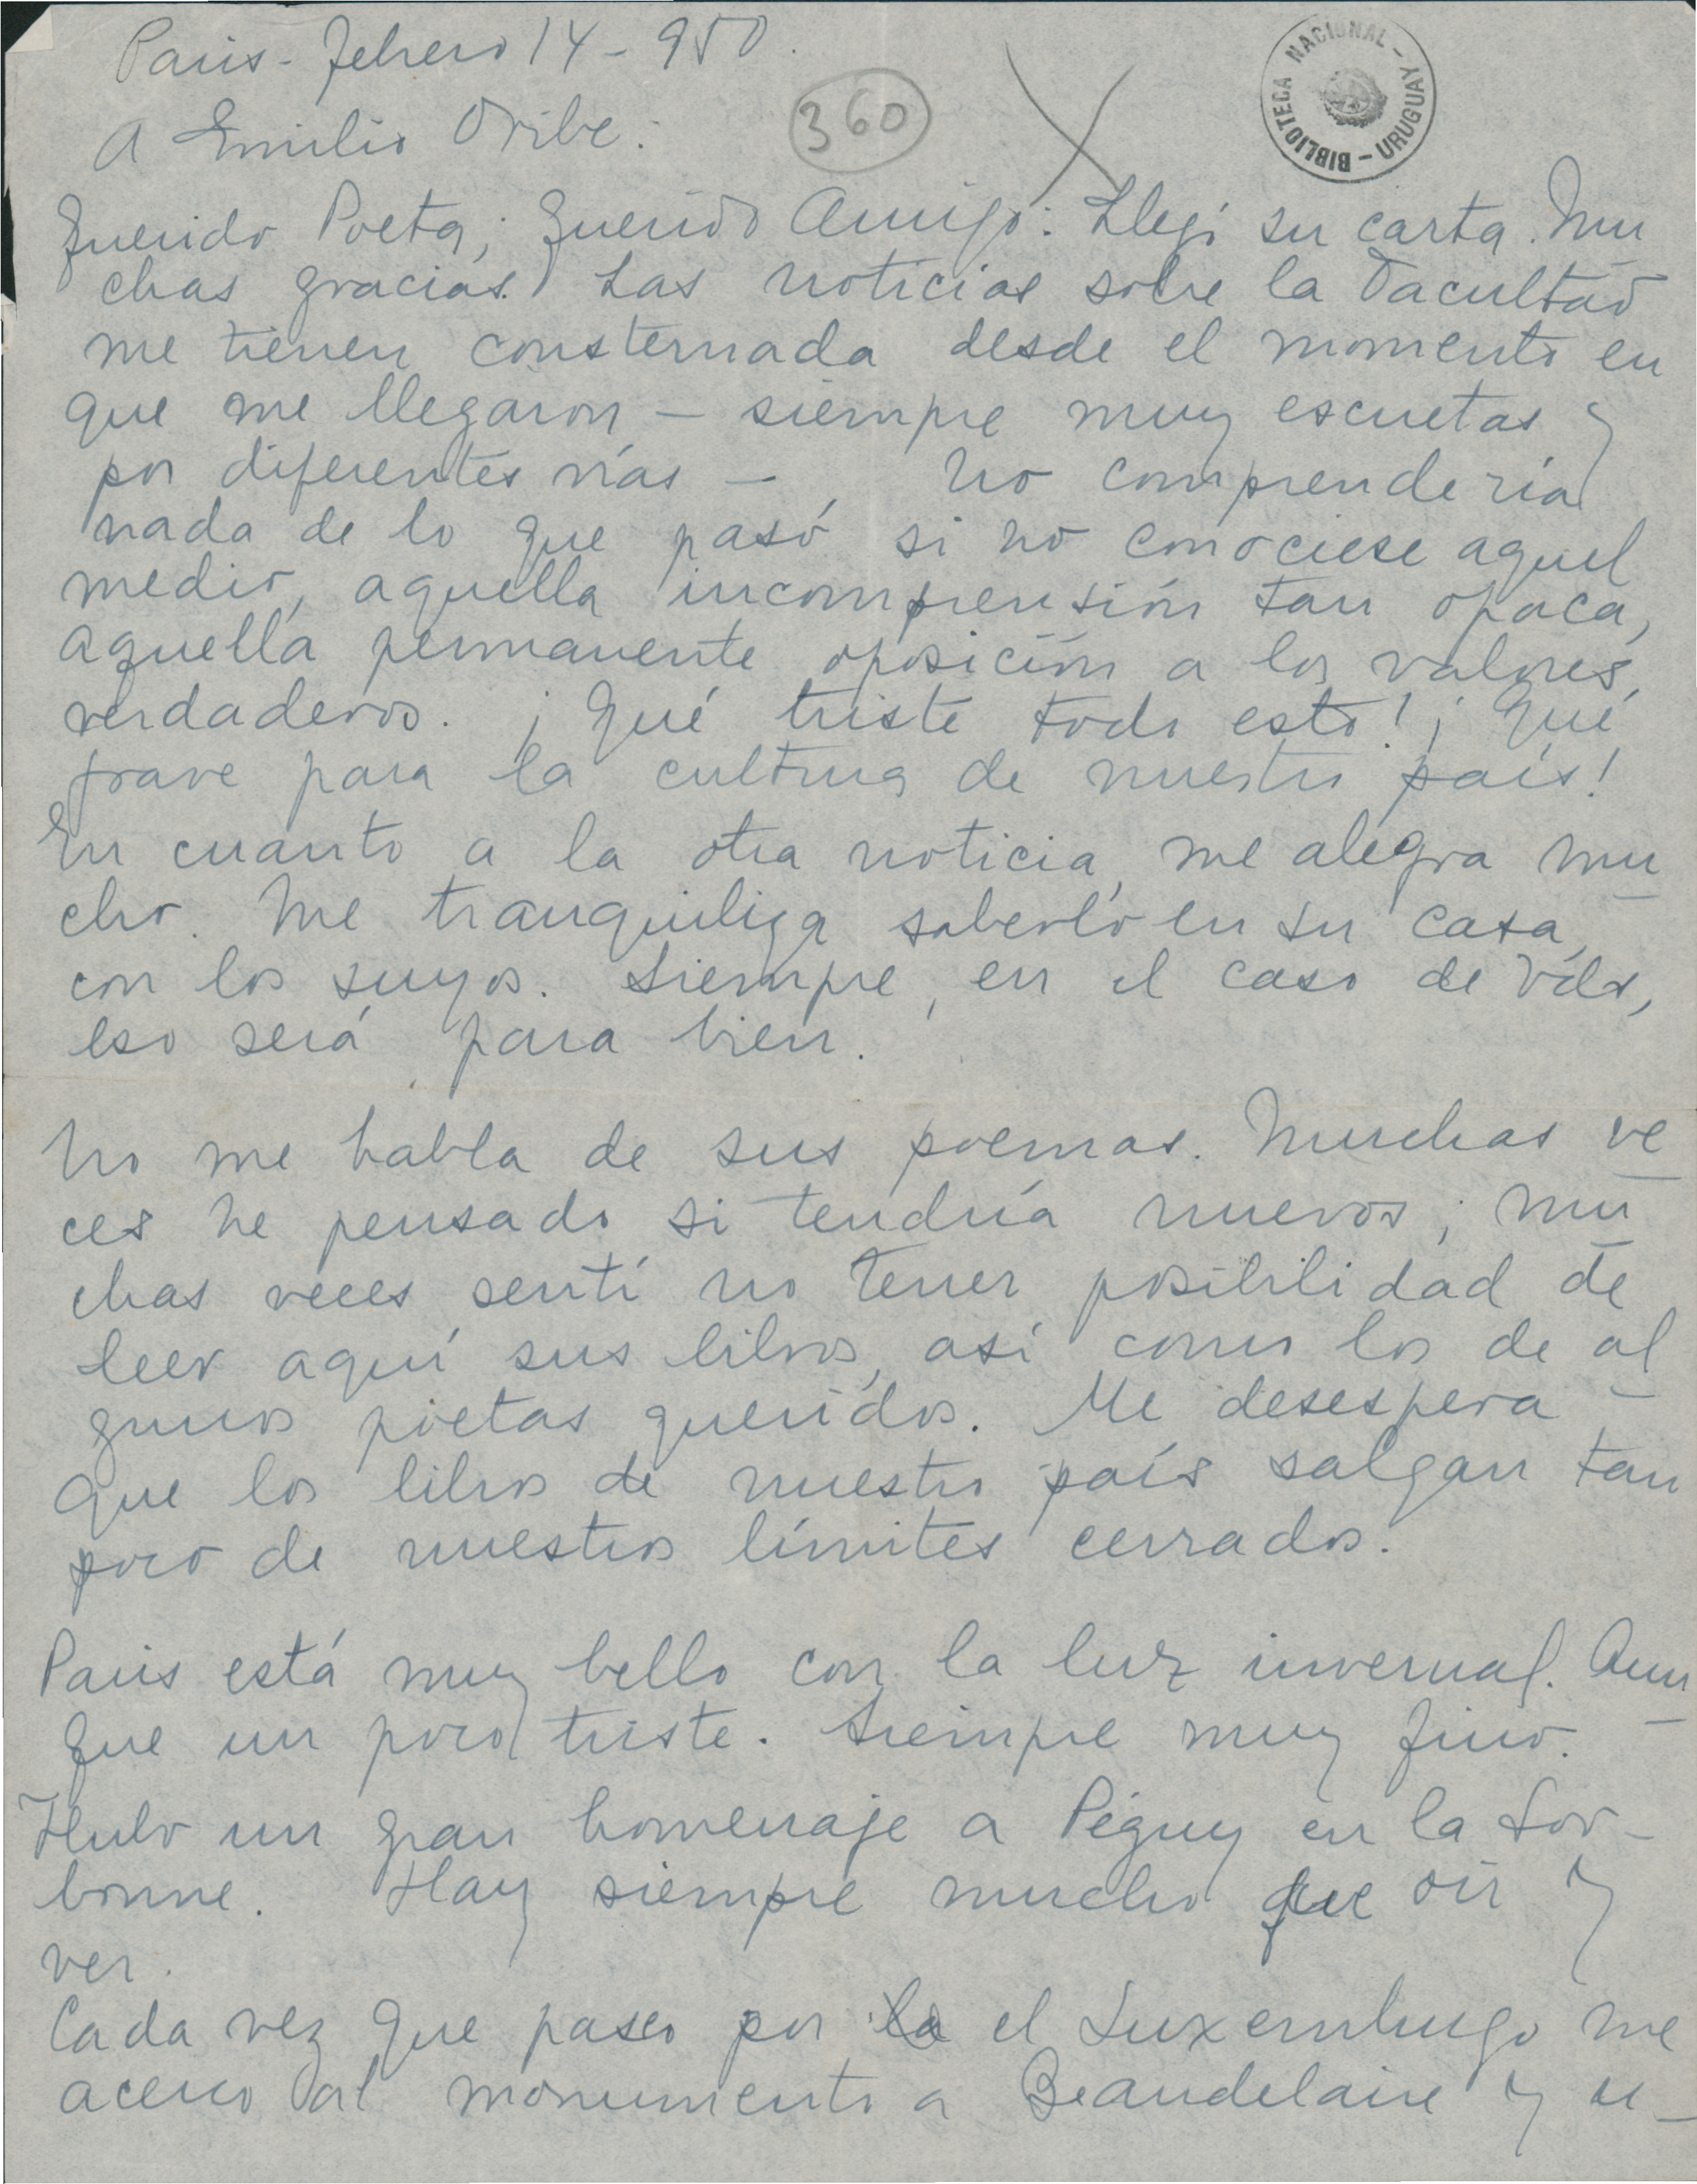 Paris - febrero 14 - 950.
A Emilio Oribe:
360
BIBLIOTECA NACIONAL - URUGUAY -
Querido Poeta; Querido Amigo: Llegó su carta. Mu
chas gracias. Las noticias sobre la Facultad
me tienen consternada desde el momento en
que me llegaron — siempre muy escuetas y
por diferentes vías —, No comprendería
nada de lo que pasó si no conociese aquel
medio, aquella incomprensión tan opaca,
aquella permanente oposición a los valores
verdaderos. ¡Qué triste todo esto! ¡Qué
grave para la cultura de nuestro país!
En cuanto a la otra noticia, me alegra mu
cho. Me tranquiliza saberlo en su casa,
con los suyos. Siempre, en el caso de Vds,
eso será para bien.
No me habla de sus poemas. Muchas ve
ces he pensado si tendría nuevos; mu
chas veces sentí no tener posibilidad de
leer aquí sus libros, así como los de al
gunos poetas queridos. Me desespera
que los libros de nuestro país salgan tan
poco de nuestros límites cerrados.
Paris está muy bello con la luz invernal. Aun
que un poco triste. Siempre muy fino.
Hubo un gran homenaje a Péguy en la Sor-
bonne. Hay siempre mucho que oír y
ver.
Cada vez que paseo por la el Luxemburgo me
acerco al monumento a Beaudelaire y u-